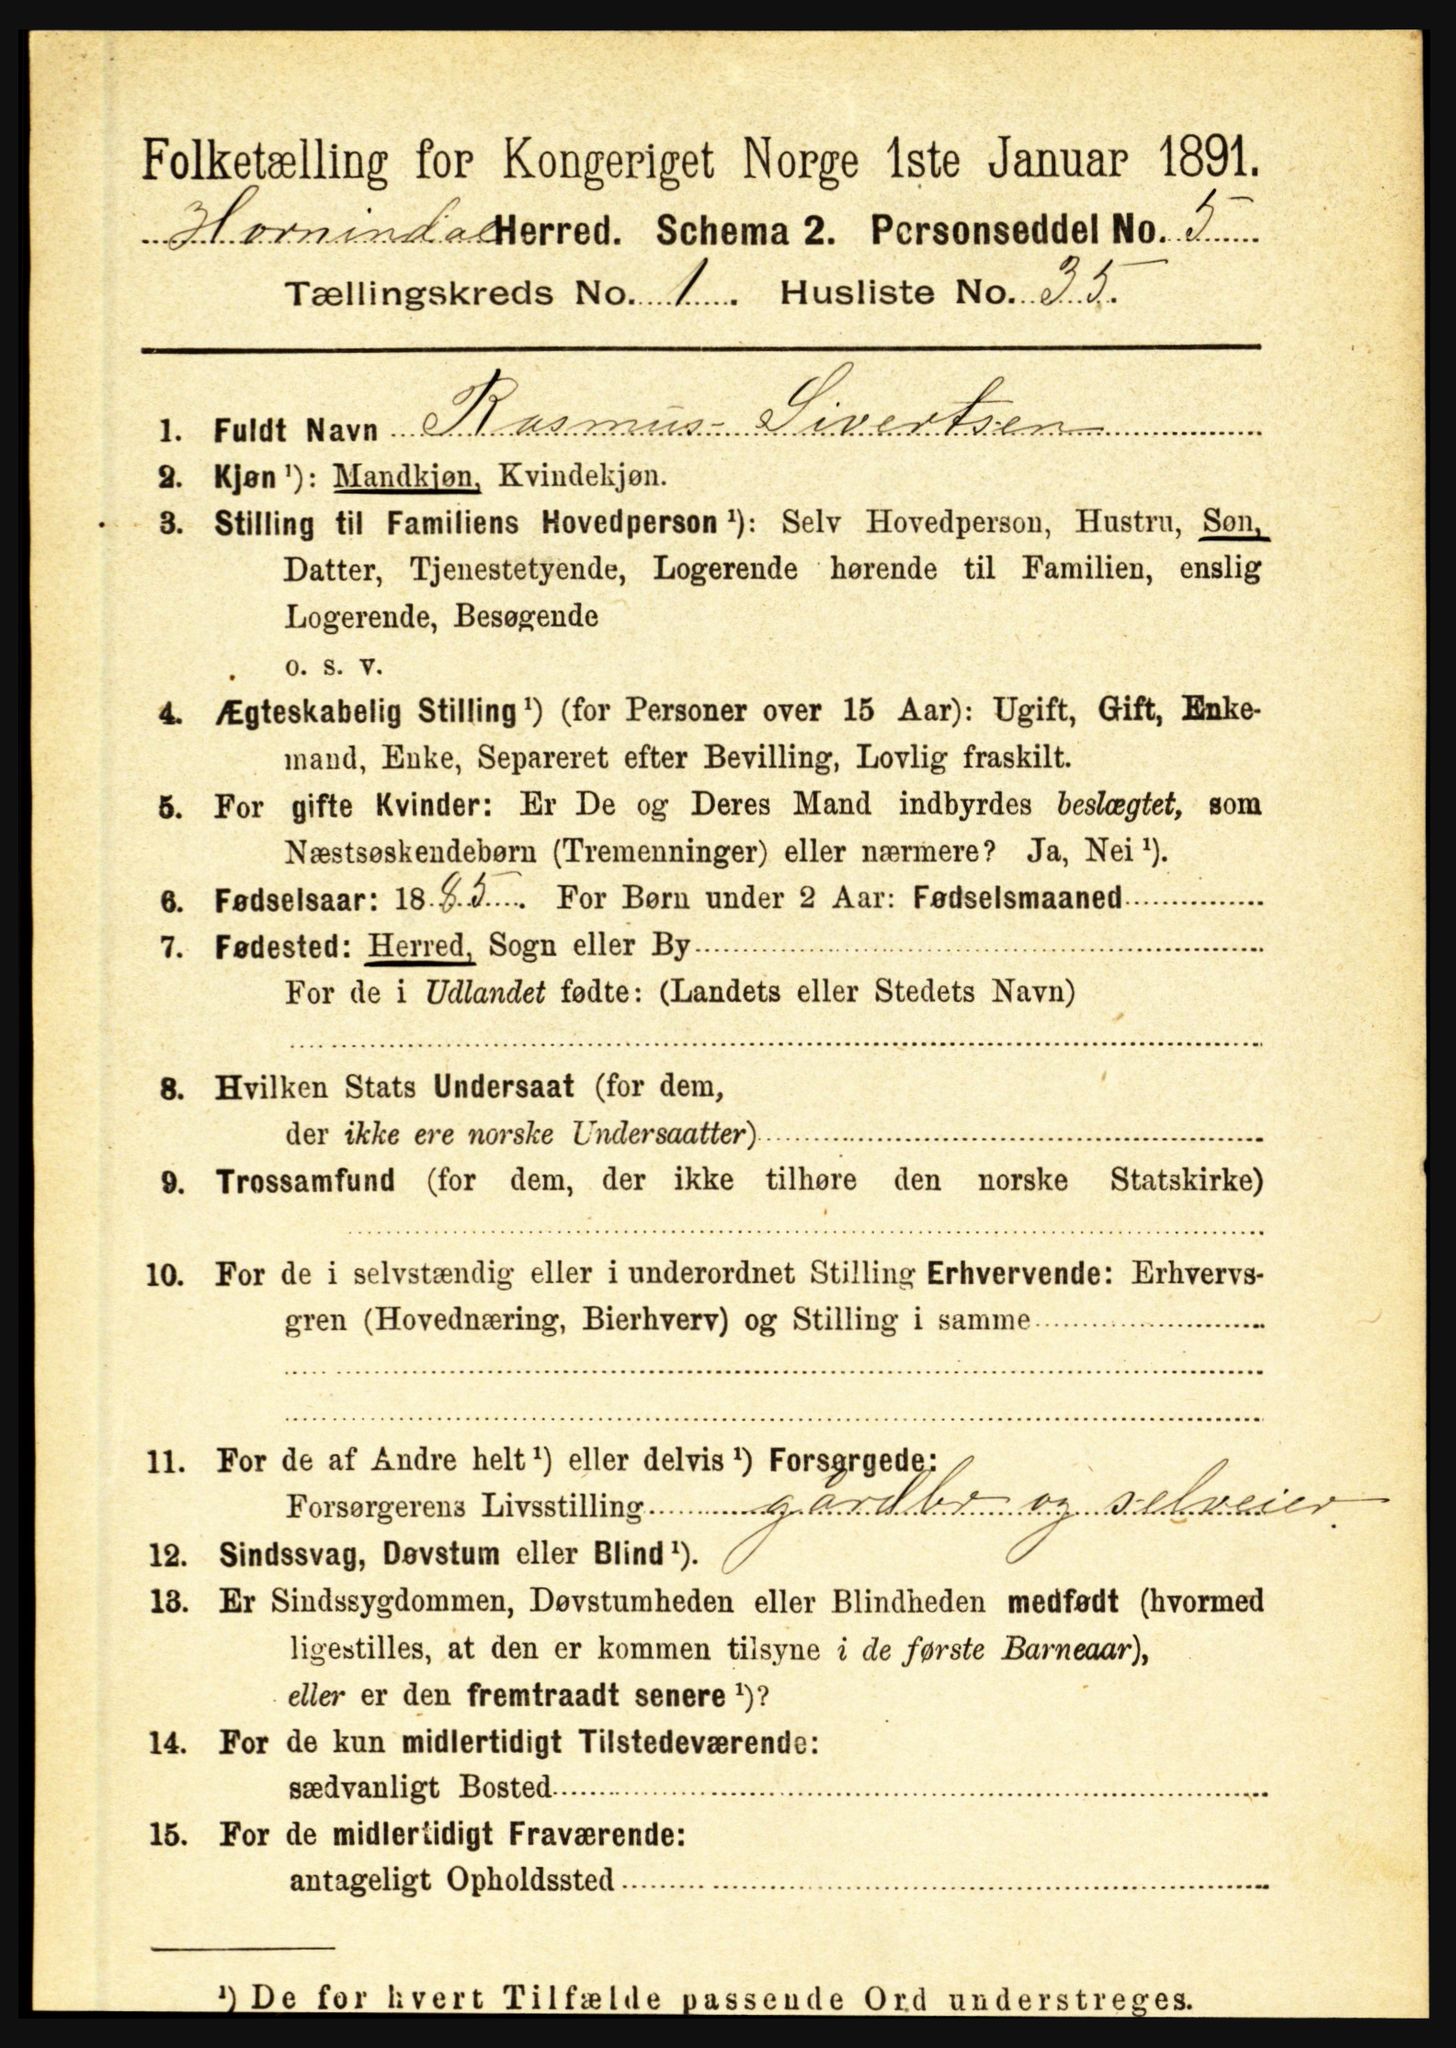 Folketælling for Kongeriget Norge 1ste Januar 1891.
Hornindal Herred. Schema 2. Personseddel No. 5
Tællingskreds No. 1. Husliste No. 35.
1. Fuldt Navn Rasmus Sivertsen
2. Kjøn¹): Mandkjøn, Kvindekjøn.
3. Stilling til Familiens Hovedperson¹): Selv Hovedperson, Hustru, Søn,
Datter, Tjenestetyende, Logerende hørende til Familien, enslig
Logerende, Besøgende
o. s. v.
4. Ægteskabelig Stilling¹) (for Personer over 15 Aar): Ugift, Gift, Enke-
mand, Enke, Separeret efter Bevilling, Lovlig fraskilt.
5. For gifte Kvinder: Er De og Deres Mand indbyrdes beslægtet, som
Næstsøskendebørn (Tremenninger) eller nærmere? Ja, Nei¹).
6. Fødselsaar: 1885. For Børn under 2 Aar: Fødselsmaaned
7. Fødested: Herred, Sogn eller By
For de i Udlandet fødte: (Landets eller Stedets Navn)
8. Hvilken Stats Undersaat (for dem,
der ikke ere norske Undersaatter)
9. Trossamfund (for dem, der ikke tilhøre den norske Statskirke)
10. For de i selvstændig eller i underordnet Stilling Erhvervende: Erhvervs-
gren (Hovednæring, Bierhverv) og Stilling i samme
11. For de af Andre helt¹) eller delvis¹) Forsørgede:
Forsørgerens Livsstilling gårdbr og selveier
12. Sindssvag, Døvstum eller Blind¹).
13. Er Sindssygdommen, Døvstumheden eller Blindheden medfødt (hvormed
ligestilles, at den er kommen tilsyne i de første Barneaar),
eller er den fremtraadt senere¹)?
14. For de kun midlertidigt Tilstedeværende:
sædvanligt Bosted
15. For de midlertidigt Fraværende:
antageligt Opholdssted
¹) De for hvert Tilfælde passende Ord understreges.